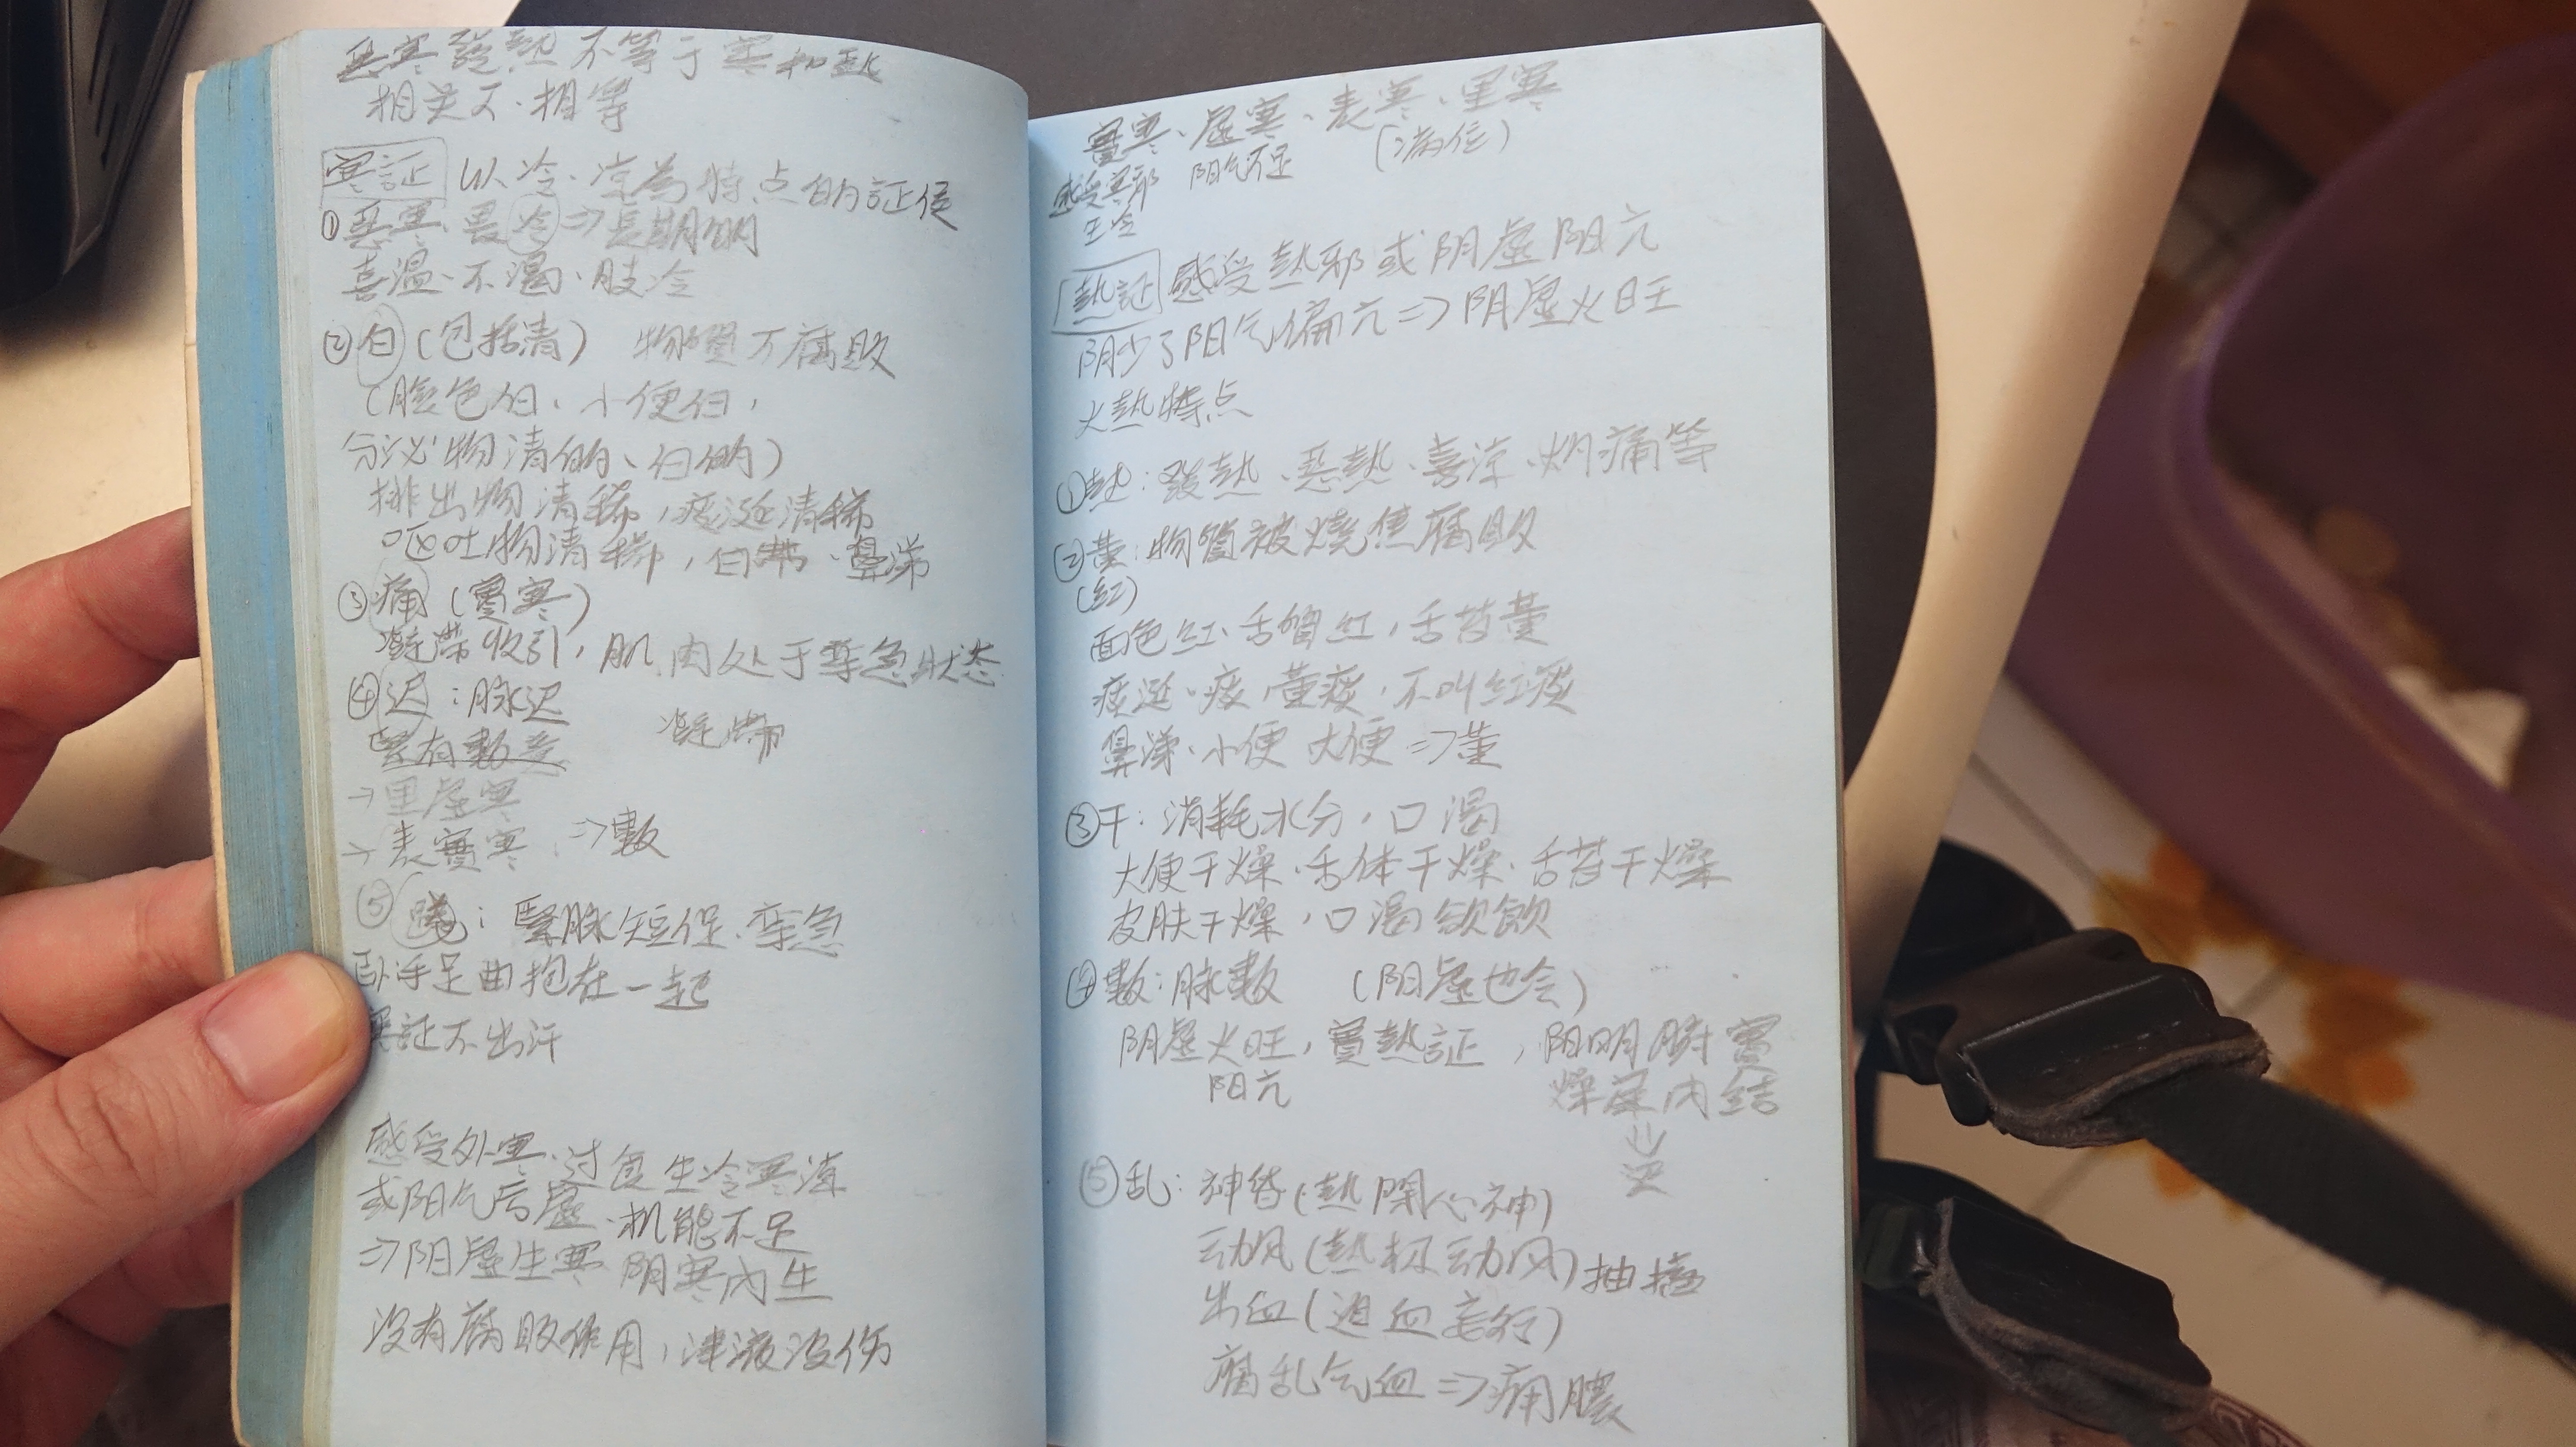 惡寒發熱不等于寒和熱
相关不相等
寒証 以冷、凉為特点的証侯
①惡寒、畏冷⇒長期的
喜温、不渴、肢冷
②白(包括清) 物質不腐敗
(臉色白、小便白,
分泌物清的、白的)
排出物清稀,痰涎清稀
呕吐物清稀,白带、鼻涕
③痛(實寒)
凝滞收引,肌肉处于挛急狀态
④迟:脉迟 凝滞
緊有數意
→里虛寒
→表實寒 ⇒數
⑤ : 緊脉短促、挛急
卧手足曲抱在一起
寒証不出汗
感受外寒、过食生冷寒凉
或阳气亏虛、机能不足
⇒阳虛生寒 阴寒内生
没有腐敗作用,津液没伤
實寒、虛寒、表寒、里寒
感受寒邪 阳气不足 (病位)
生冷
熱証 感受熱邪或阴虛阳亢
阴少了阳气偏亢⇒阴虛火旺
火熱特点
①熱:發熱、惡熱、喜凉、灼痛等
②黄:物質被燒焦腐敗
(紅)
面色紅、舌質紅,舌苔黄
痰涎、痰,黄痰,不叫紅痰
鼻涕、小便 大便⇒黄
③干:消耗水分,口渴
大便干燥、舌体干燥、舌苔干燥
皮肤干燥,口渴欲飲
④數:脉數 (阳虛也会)
阴虛火旺,實熱証,阳明腑實
阳亢 燥屎内結
⇓
迟
⑤乱:神昏(熱閉心神)
动风(熱极动风)抽搐
出血(迫血妄行)
腐乱气血⇒痈膿